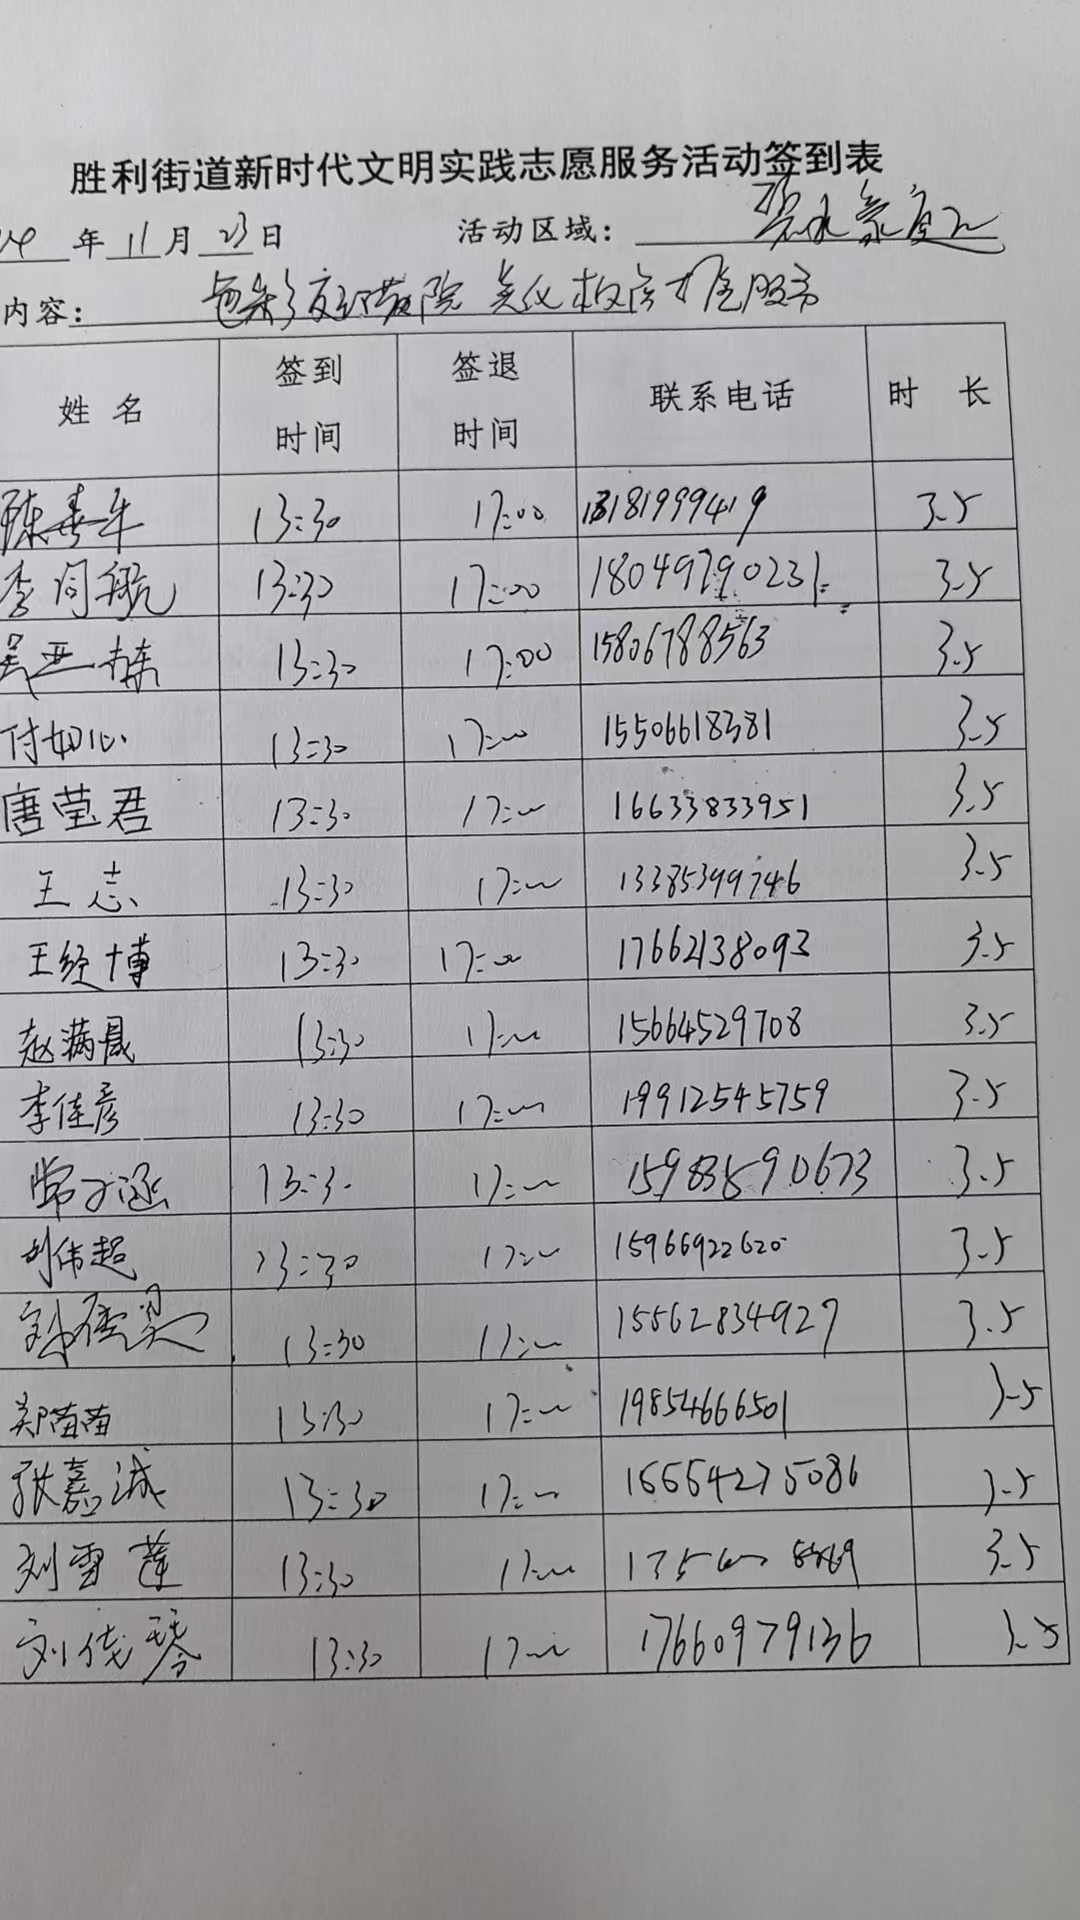 胜利街道新时代文明实践志愿服务活动签到表
24 年 11 月 23 日 活动区域： 碧水豪庭
内容： 院 义 服务
姓名 签到时间 签退时间 联系电话 时长
陈春华 13:30 17:00 13181999419 3.5
李同航 13:30 17:00 18049790231 3.5
吴亚栋 13:30 17:00 15806788563 3.5
付如心 13:30 17:00 15506618381 3.5
唐莹君 13:30 17:00 16633833951 3.5
王志 13:30 17:00 13385399746 3.5
王经博 13:30 17:00 17662138093 3.5
赵满晟 13:30 17:00 15664529708 3.5
李佳彦 13:30 17:00 19912545759 3.5
常子涵 13:30 17:00 15983590673 3.5
刘伟超 13:30 17:00 15966922620 3.5
13:30 17:00 15562834927 3.5
郑苗苗 13:30 17:00 19854666501 3.5
张嘉诚 13:30 17:00 15554275086 3.5
刘雪莲 13:30 17:00 3.5
刘佳琴 13:30 17:00 17660979136 3.5